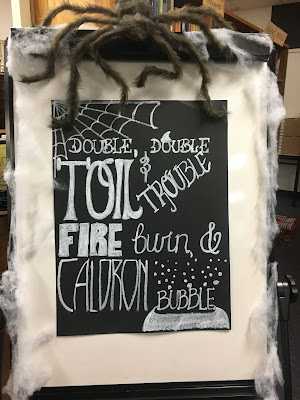 DOUBLE, DOUBLE
TOIL & TROUBLE
FIRE burn, &
CALDRON BUBBLE